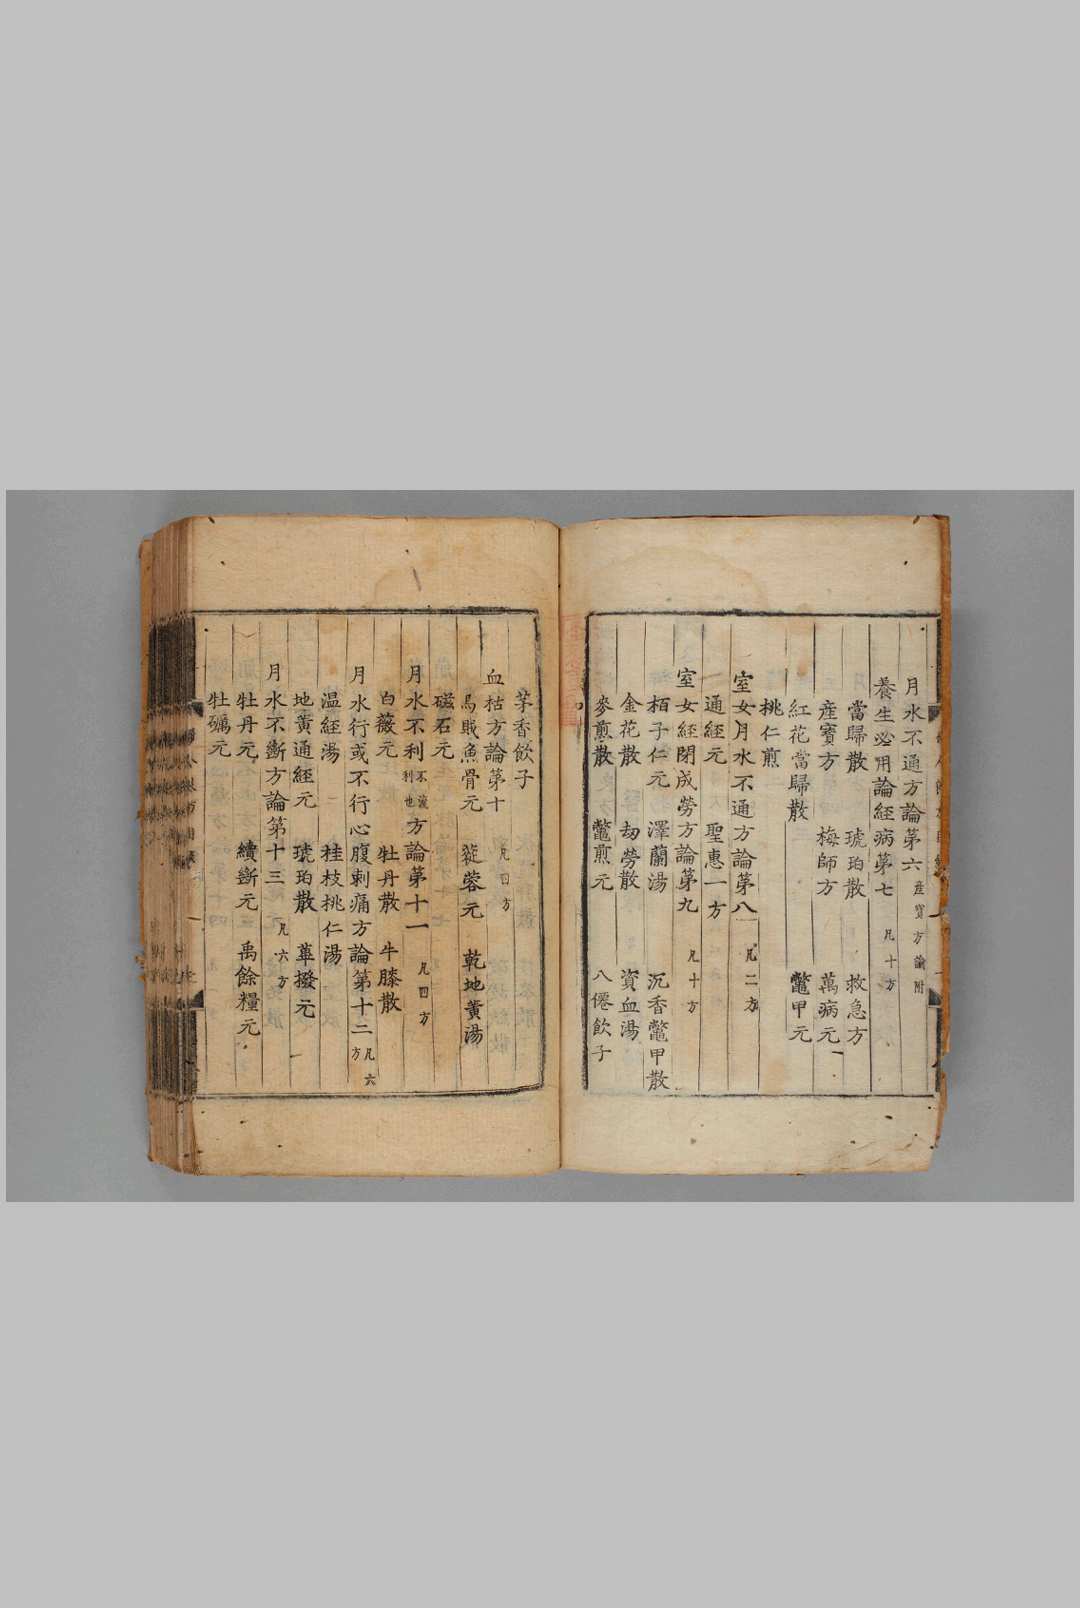 月水不通方論第六 産寶方論附
養生必用論經病第七 凡十方
當歸散 琥珀散 救急方
産寶方 梅師方 萬病元
紅花當歸散 鼈甲元
桃仁煎
室女月水不通方論第八 凡二方
通經元 聖惠一方
室女經閉成勞方論第九 凡十方
栢子仁元 澤蘭湯 沉香鼈甲散
金花散 劫勞散 資血湯
麥煎散 鼈煎元 八僊飲子
茅香飲子
血枯方論第十 凡四方
烏賊魚骨元 蓯蓉元 乾地黃湯
磁石元
月水不利 方論第十一 凡四方
白薇元 牡丹散 牛膝散
月水行或不行心腹刺痛方論第十二 凡六方
温經湯 桂枝桃仁湯
地黃通經元 琥珀散 蓽撥元
月水不斷方論第十三 凡六方
牡丹元 續斷元 禹餘糧元
牡礪元